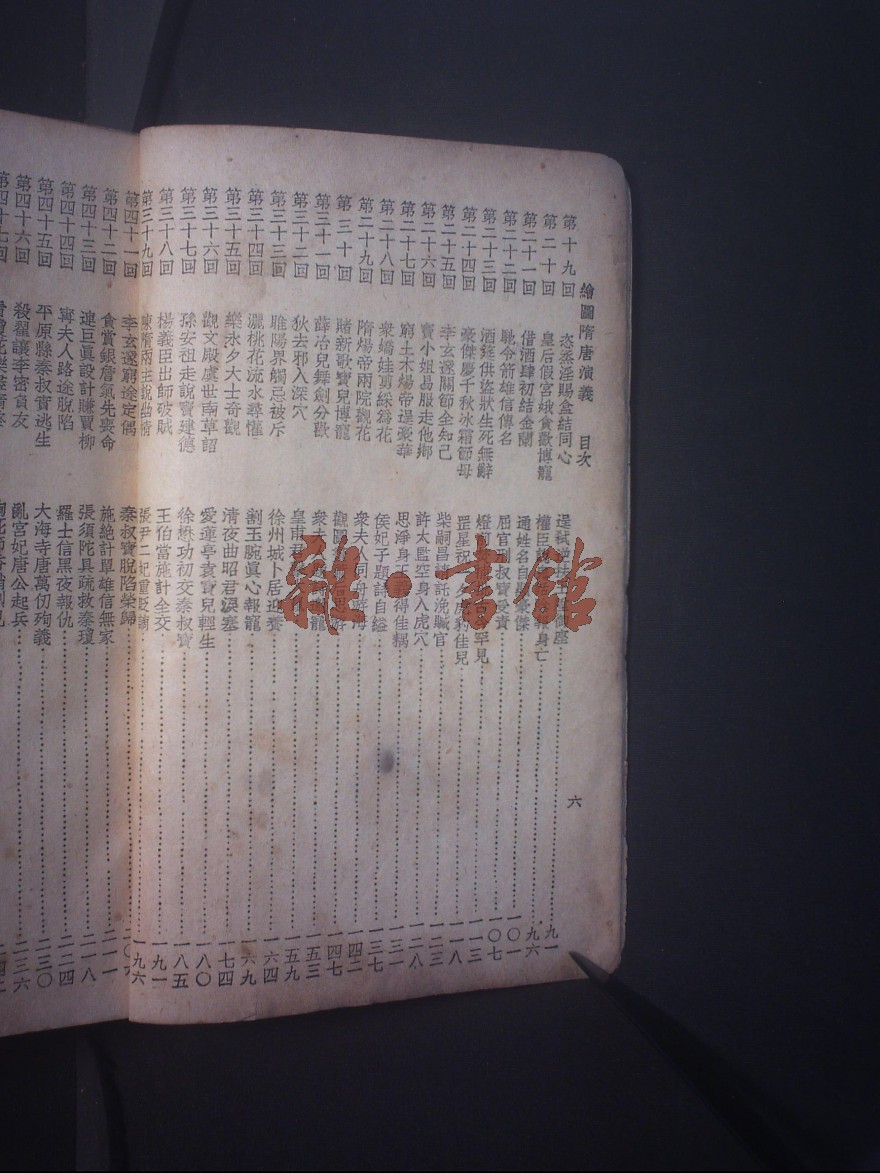 繪圖隋唐演義 目次 六
第十九回 恣蒸淫賜盒結同心 逞弒逆座 九一
第二十回 皇后假宮娥貪歡博寵 權臣報身亡 九六
第二十一回 借酒肆初結金蘭 通姓名自顯豪傑 一〇一
第二十二回 馳令箭雄信傳名 屈官刑叔寶受責 一〇七
第二十三回 酒筵供盜狀生死無辭 燈罕見 一一三
第二十四回 豪傑慶千秋冰霜節母 罡星祝虎豹佳兒 一一八
第二十五回 李玄邃關節全知己 柴嗣昌請託浼贓官 一二三
第二十六回 竇小姐易服走他鄉 許太監空身入虎穴 一二八
第二十七回 窮土木煬帝逞豪華 思淨身王義得佳耦 一三一
第二十八回 衆嬌娃剪綵爲花 侯妃子題詩自縊 一三七
第二十九回 隋煬帝兩院觀花 衆夫人同舟遊海 一四二
第三十回 賭新歌寶兒博寵 觀圖 一四七
第三十一回 薛冶兒舞劍分歡 衆夫寵 一五三
第三十二回 狄去邪入深穴 皇甫君 一五九
第三十三回 睢陽界觸忌被斥 徐州城卜居迎養 一六四
第三十四回 灑桃花流水尋懽 割玉腕眞心報寵 一六九
第三十五回 樂水夕大士奇觀 淸夜曲昭君淚塞 一七四
第三十六回 觀文殿虞世南草詔 愛蓮亭袁寶兒輕生 一八〇
第三十七回 孫安祖走說竇建德 徐懋功初交秦叔寶 一八五
第三十八回 楊義臣出師破賊 王伯當施計全交 一九一
第三十九回 陳隋兩主說幽情 張尹二妃重貶謫 一九六
第四十一回 李玄邃窮途定偶 秦叔寶脫陷榮歸 二〇六
第四十二回 貪賞銀詹氣先喪命 施絕計單雄信無家 二一一
第四十三回 連巨眞設計賺賈柳 張須陀具疏救秦瓊 二一八
第四十四回 寗夫人路途脫陷 羅士信黑夜報仇 二二四
第四十五回 平原縣秦叔寶逃生 大海寺唐萬仞殉義 二三〇
第四十六回 殺翟讓李密負友 亂宮妃唐公起兵 二三六
第四十七回
雜·書館